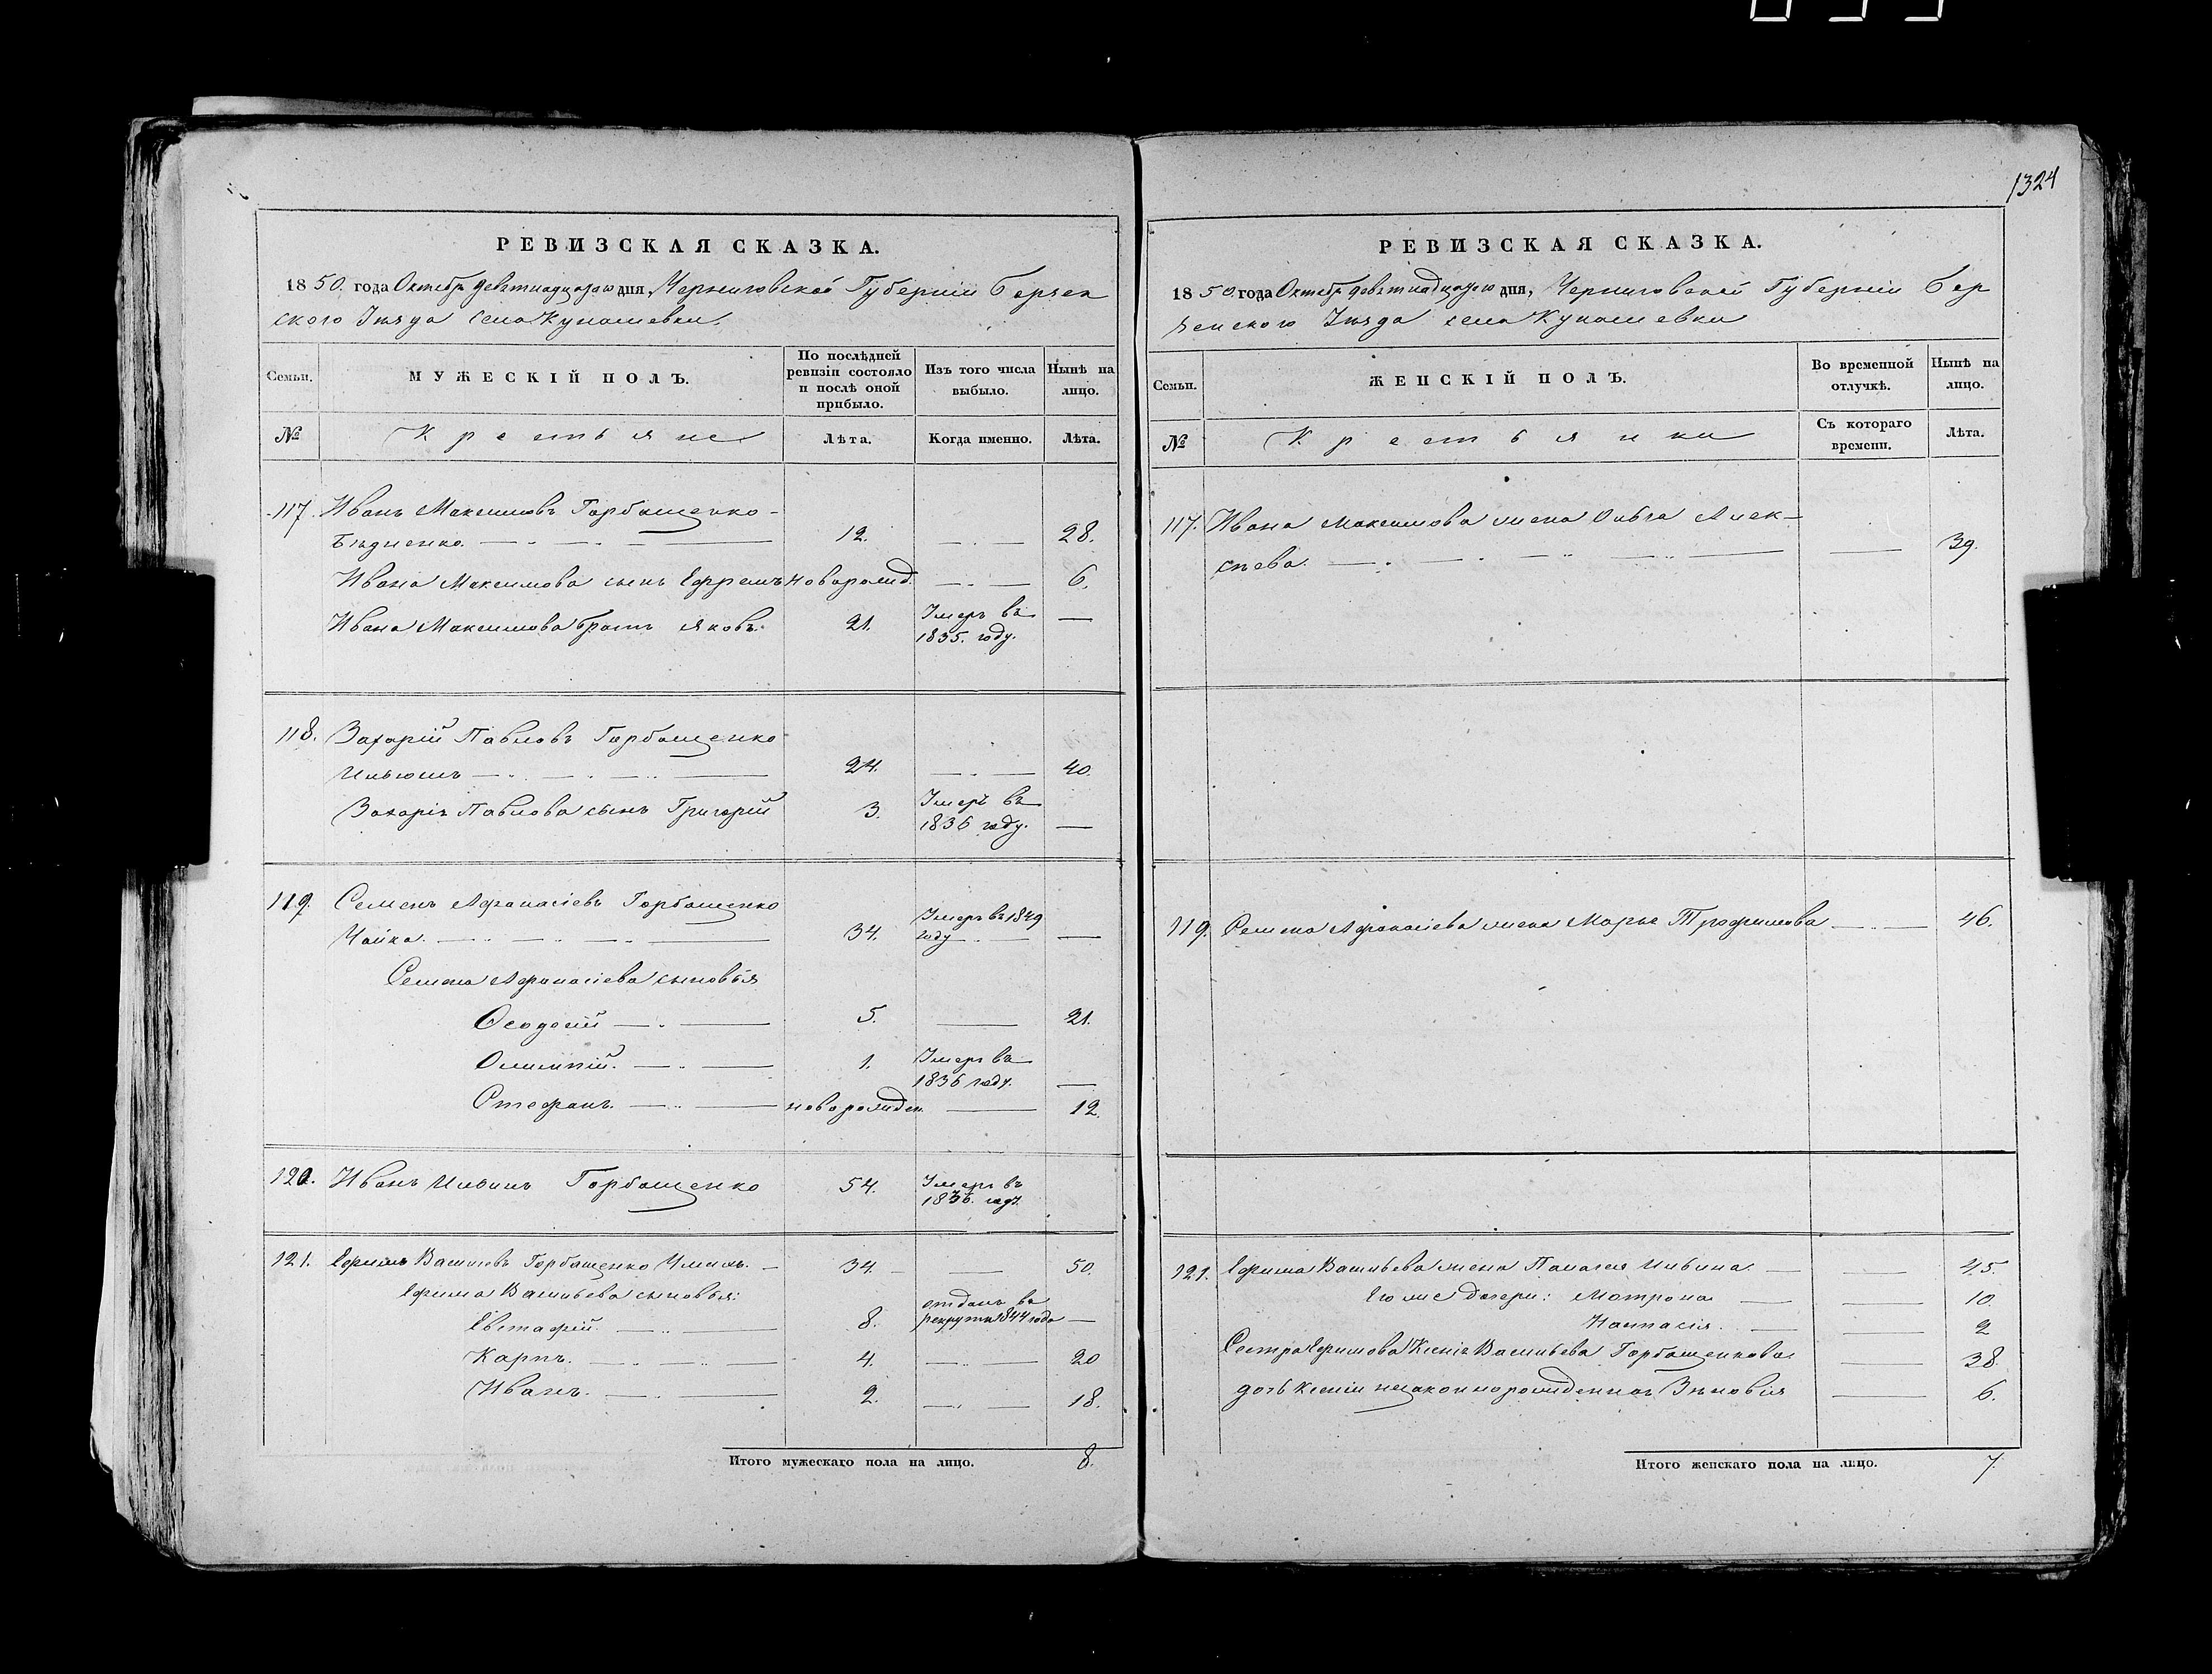 1324
РЕВИЗСКАЯ СКАЗКА.
1850. года Октябр. девятнадцатаго дня, Черниговской Губерніи Борзен
ского Уѣзда села Кунашевки.
Семьи.
МУЖЕСКІЙ ПОЛЪ.
По послѣдней
ревизіи состояло
и послѣ оной
прибыло.
Изъ того числа
выбыло.
Нынѣ на
лицо.
№
Крестьяне
Лѣта.
Когда именно.
Лѣта.
117. Иванъ Максимовъ Горбащенко
Бѣдненко. 12. 28.
Ивана Максимова сынъ Ефремъ новорожд. 6.
Ивана Максимова братъ Яковъ. 21. Умеръ въ
1835. году.
118. Захарій Павловъ Горбащенко
24. 40.
Захарія Павлова сынъ Григорій 3. Умеръ въ
1836 году.
119. Семенъ Афанасіевъ Горбащенко
Чайка. 34. Умеръ въ 1849
году
Семена Афанасіева сыновья
Феодосій 5. 21.
Олимпій. 1. Умеръ въ
1836 году.
Стефанъ. новорожден. 12.
120. Иванъ Ильинъ Горбащенко 54. Умеръ въ
1836. году.
121. Ефимъ Васильевъ Горбащенко 34. 50.
Ефима Васильева сыновья:
Евстафій. 8. отданъ въ
рекруты 1844 года
Карпъ. 4. 20
Иванъ. 2. 18.
Итого мужескаго пола на лицо. 8.
РЕВИЗСКАЯ СКАЗКА.
1850. года Октябр. девятнадцатаго дня, Черниговской Губерніи Бор
зенского Уѣзда села Кунашевки
Семьи.
ЖЕНСКІЙ ПОЛЪ.
Во временной
отлучкѣ.
Нынѣ на
лицо.
№
Крестьянки
Съ котораго
времени.
Лѣта.
117. Ивана Максимова жена Ольга Алек-
сѣева. 39.
119. Семена Афанасіева жена Марья Трофимова 46.
121. Ефима Васильева жена Палагея Ильина 45.
Его же дочери: Мотрона 10.
Настасія. 2
Сестра Ефимова Ксенія Васильева Горбащенкова 38.
дочь Ксеніи незаконнорожденная Зѣновія 6.
Итого женскаго пола на лицо. 7.